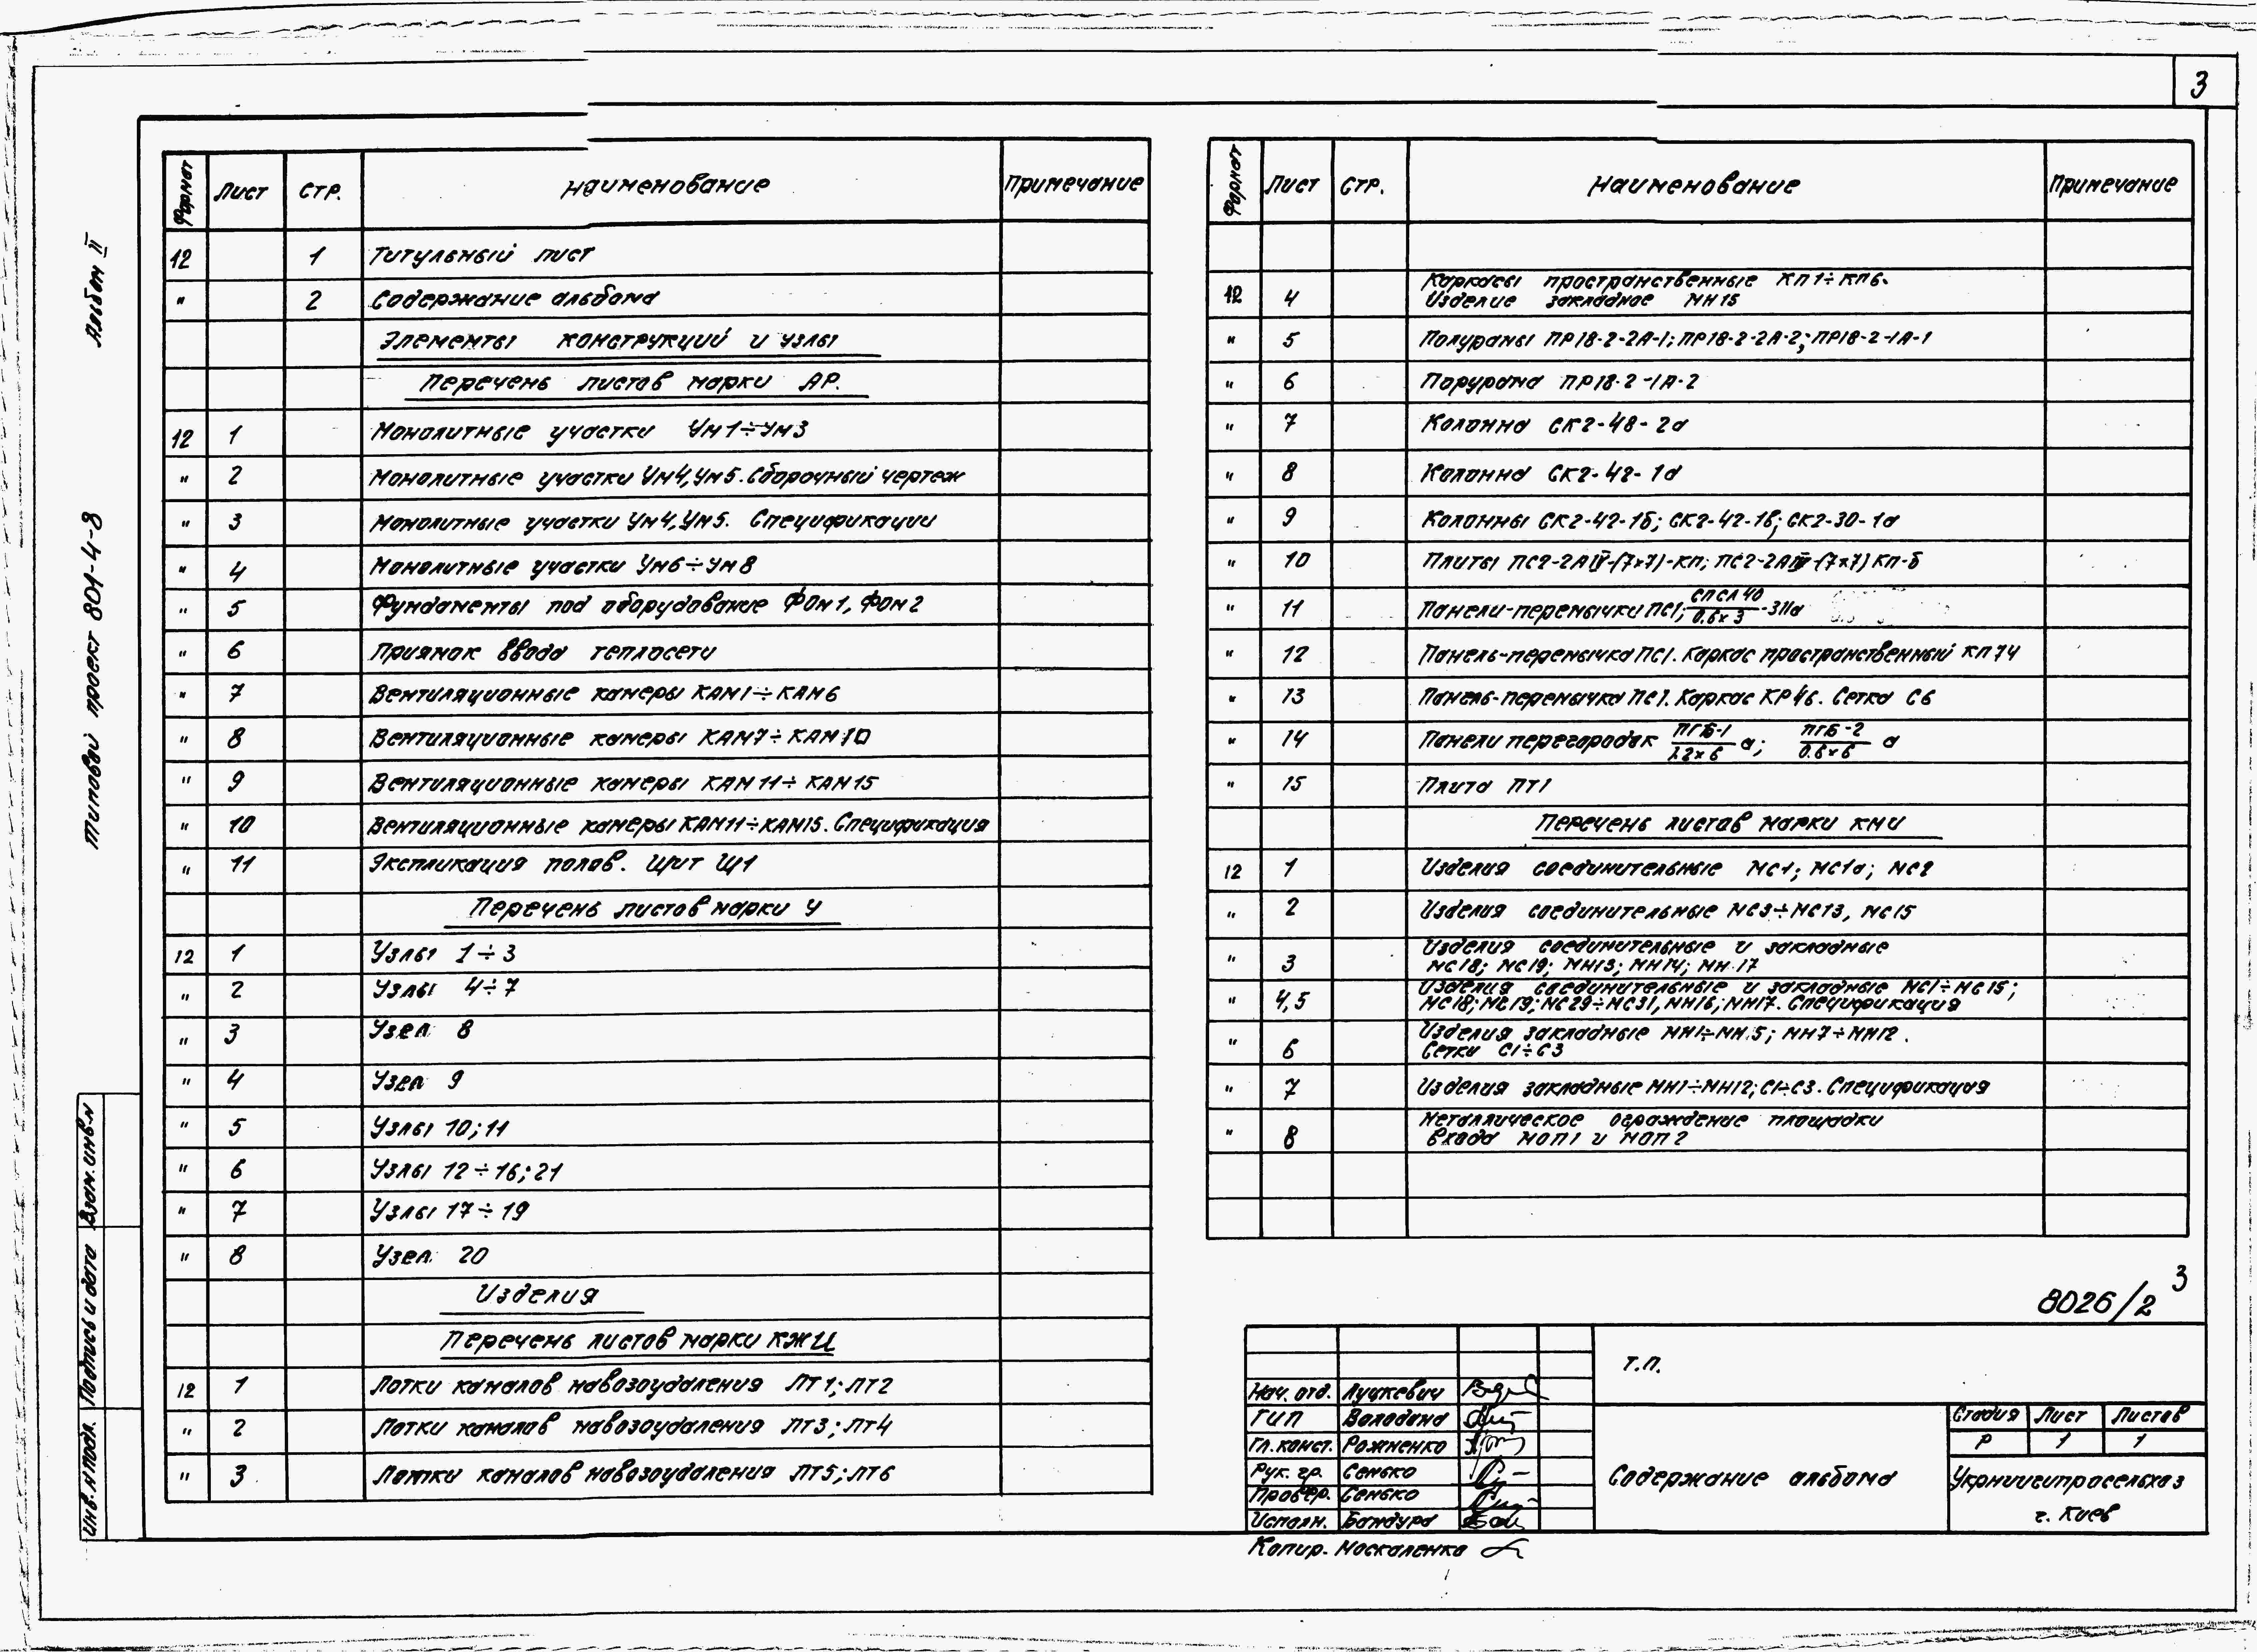 3
Альбом II
Типовой проект 801-4-8
Взам. инв. N
Подпись и дата
Инв. N подл.
Формат Лист Стр. Наименование Примечание
12 1 Титульный лист
" 2 Содержание альбома
Элементы конструкций и узлы
Перечень листов марки АР.
12 1 Монолитные участки Ум1÷Ум3
" 2 Монолитные участки Ум4, Ум5. Сборочный чертеж
" 3 Монолитные участки Ум4, Ум5. Спецификации
" 4 Монолитные участки Ум6÷Ум8
" 5 Фундаменты под оборудование ФОм1, ФОм2
" 6 Приямок ввода теплосети
" 7 Вентиляционные камеры КАМ1÷КАМ6
" 8 Вентиляционные камеры КАМ7÷КАМ10
" 9 Вентиляционные камеры КАМ11÷КАМ15
" 10 Вентиляционные камеры КАМ11÷КАМ15. Спецификация
" 11 Экспликация полов. Щит Щ1
Перечень листов марки У
12 1 Узлы 1÷3
" 2 Узлы 4÷7
" 3 Узел 8
" 4 Узел 9
" 5 Узлы 10; 11
" 6 Узлы 12÷16; 21
" 7 Узлы 17÷19
" 8 Узел 20
Изделия
Перечень листов марки КЖИ
12 1 Лотки каналов навозоудаления ЛТ1; ЛТ2
" 2 Лотки каналов навозоудаления ЛТ3; ЛТ4
" 3 Лотки каналов навозоудаления ЛТ5; ЛТ6
Формат Лист Стр. Наименование Примечание
Каркасы пространственные КП1÷КП6.
12 4 Изделие закладное МН15
" 5 Полурамы ПР18-2-2А-1; ПР18-2-2А-2; ПР18-2-1А-1
" 6 Порурама ПР18-2-1А-2
" 7 Колонна СК2-48-2а
" 8 Колонна СК2-42-1а
" 9 Колонны СК2-42-1б; СК2-42-1в; СК2-30-1а
" 10 Плиты ПС2-2АIV-(7×7)-КП; ПС2-2АIV-(7×7)КП-б
" 11 Панели-перемычки ПС1; СПСЛ 40/0.6×3 -3IIа
" 12 Панель-перемычка ПС1. Каркас пространственный КП74
" 13 Панель-перемычка ПС1. Каркас КР46. Сетка С6
" 14 Панели перегородок ПГБ-1/1.2×6 а; ПГБ-2/0.6×6 а
" 15 Плита ПТ1
Перечень листов марки КМИ
12 1 Изделия соединительные МС1; МС1а; МС2
" 2 Изделия соединительные МС3÷МС13, МС15
Изделия соединительные и закладные
" 3 МС18; МС19; МН13; МН14; МН17
Изделия соединительные и закладные МС1÷МС15;
" 4,5 МС18; МС19; МС29÷МС31, МН16, МН17. Спецификация
Изделия закладные МН1÷МН5; МН7÷МН12.
" 6 Сетки С1÷С3
" 7 Изделия закладные МН1÷МН12; С1÷С3. Спецификация
Металлическое ограждение площадки
" 8 входа МОП1 и МОП2
8026/2 3
Т.П.
Нач. отд. Луцкевич
ГИП Володана
Гл. конст. Рожненко
Рук. гр. Сенько
Провер. Сенько
Исполн. Бандура
Копир. Москаленко
Содержание альбома
Стадия Лист Листов
Р 1 1
Укрниигипросельхоз
г. Киев